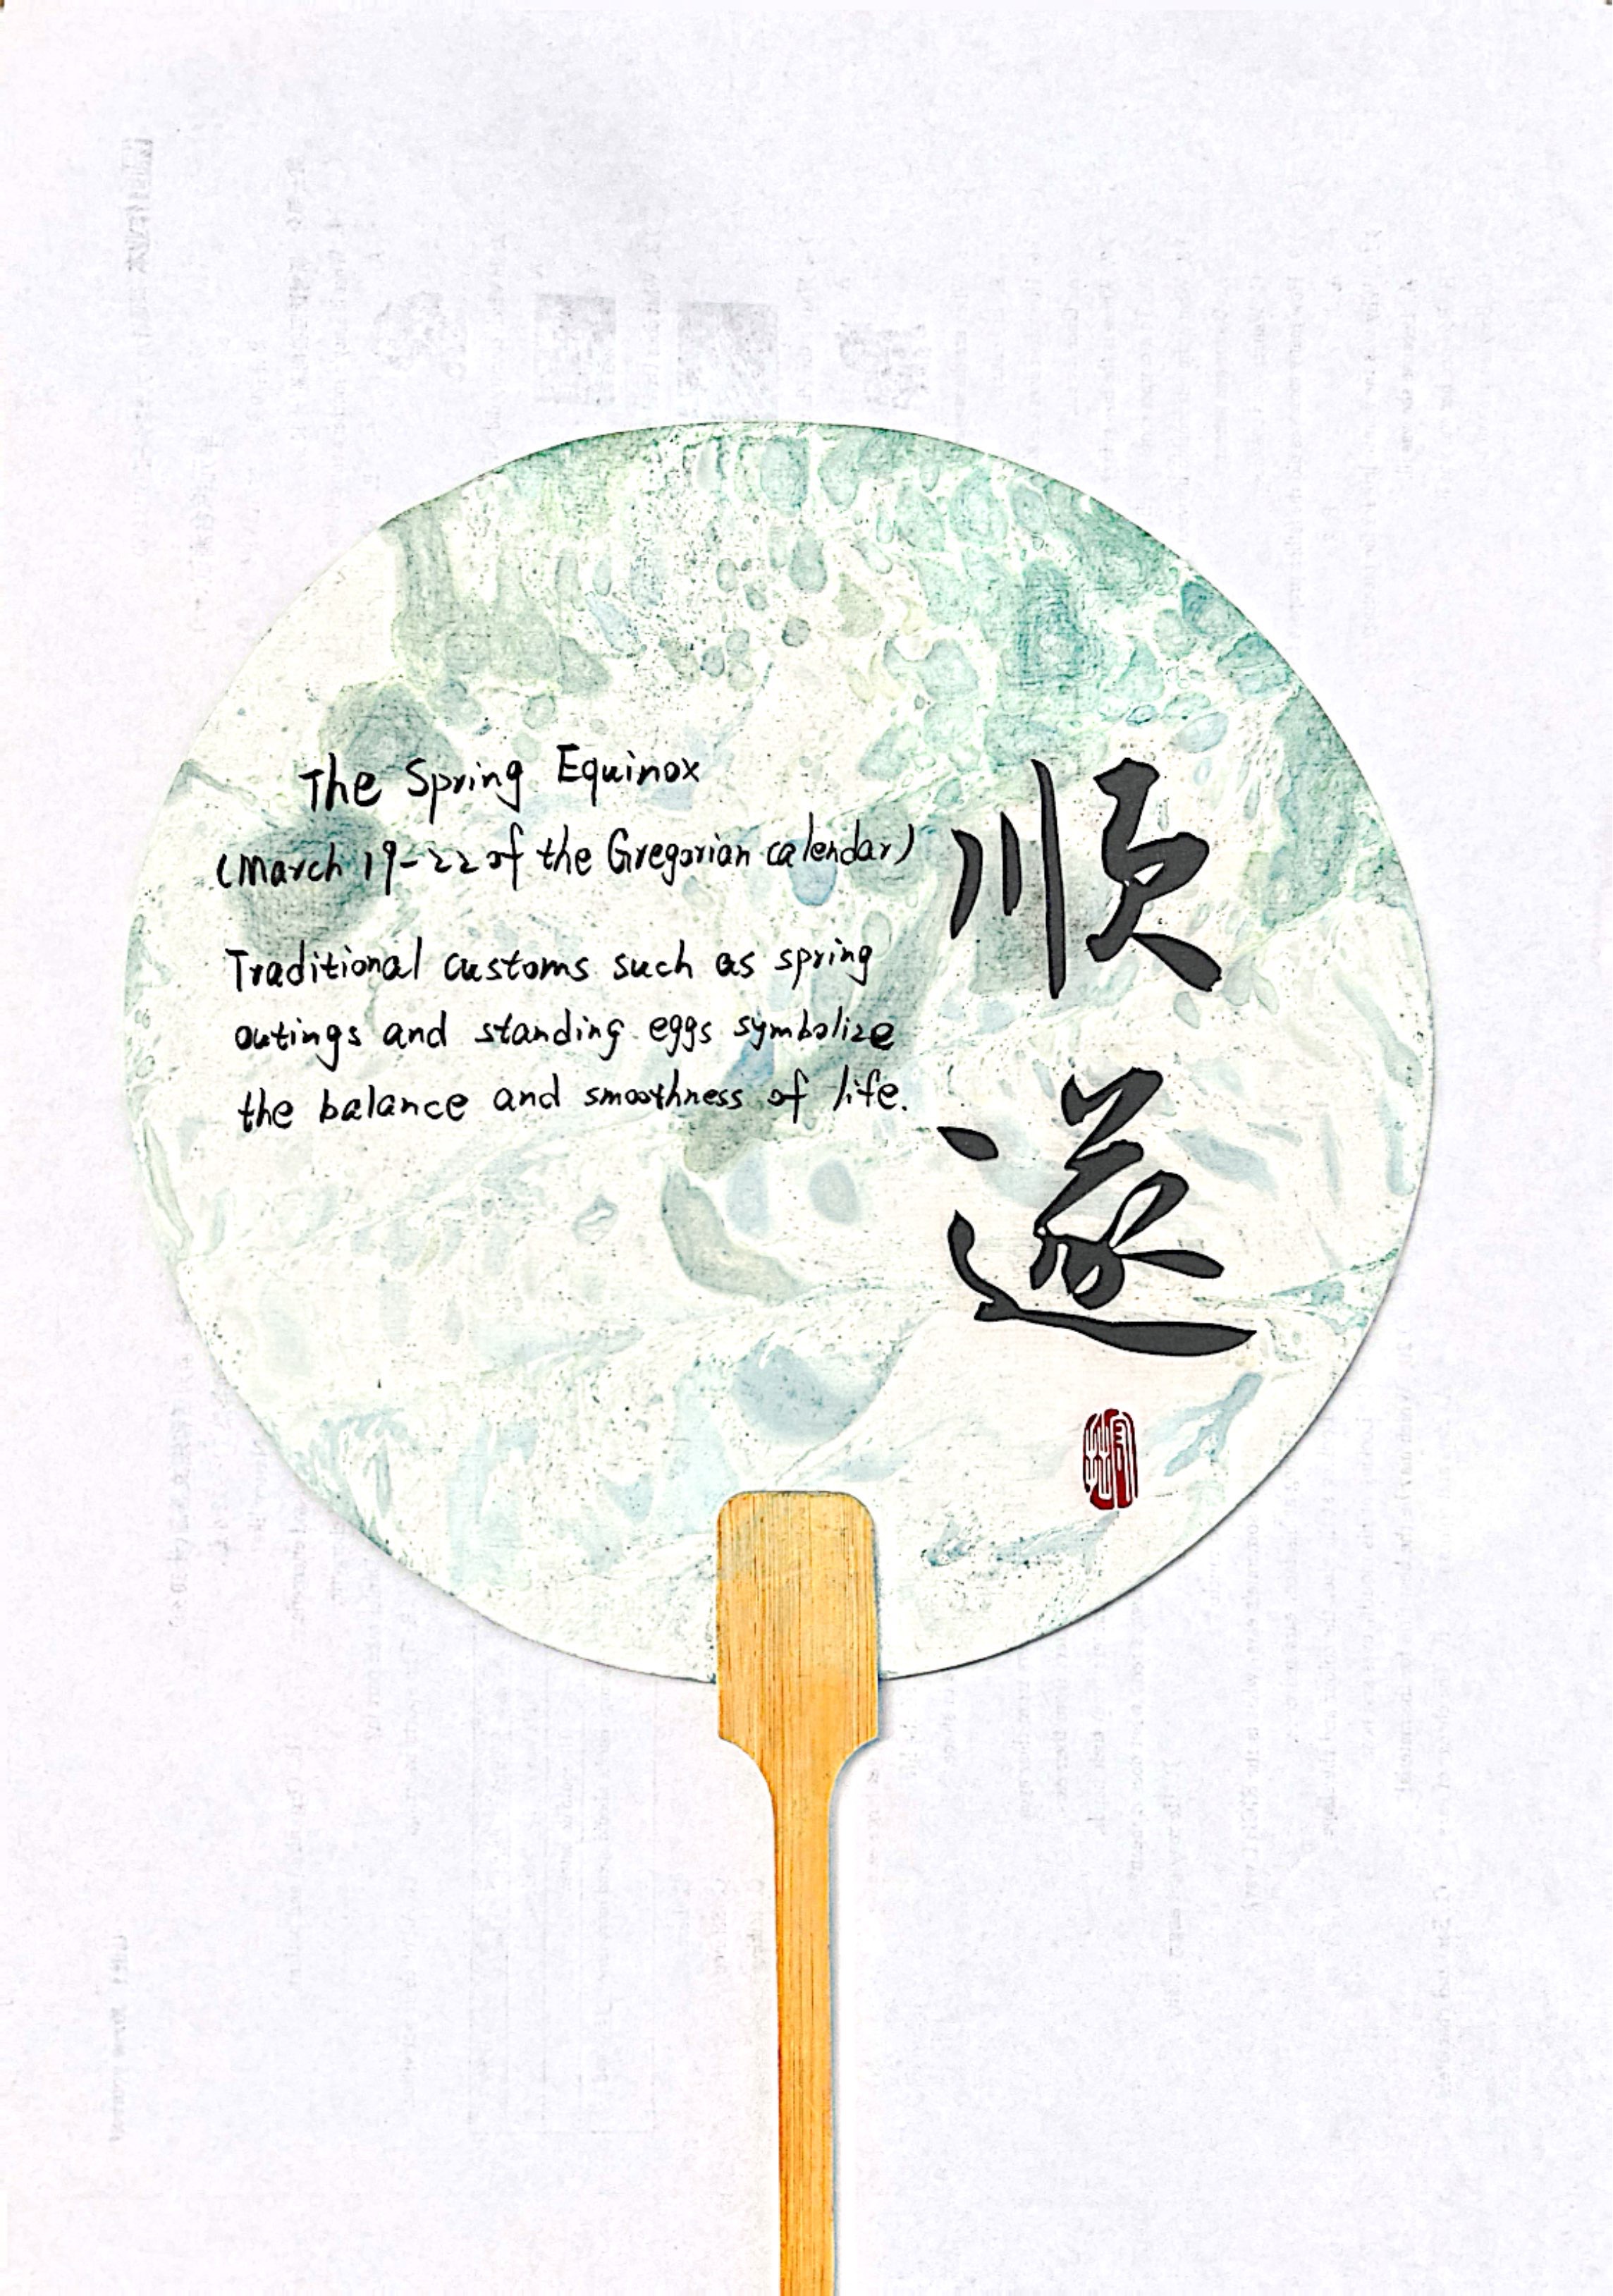 The Spring Equinox
(March 19-22 of the Gregorian calendar)
Traditional customs such as spring
outings and standing eggs symbolize
the balance and smoothness of life.
顺
遂